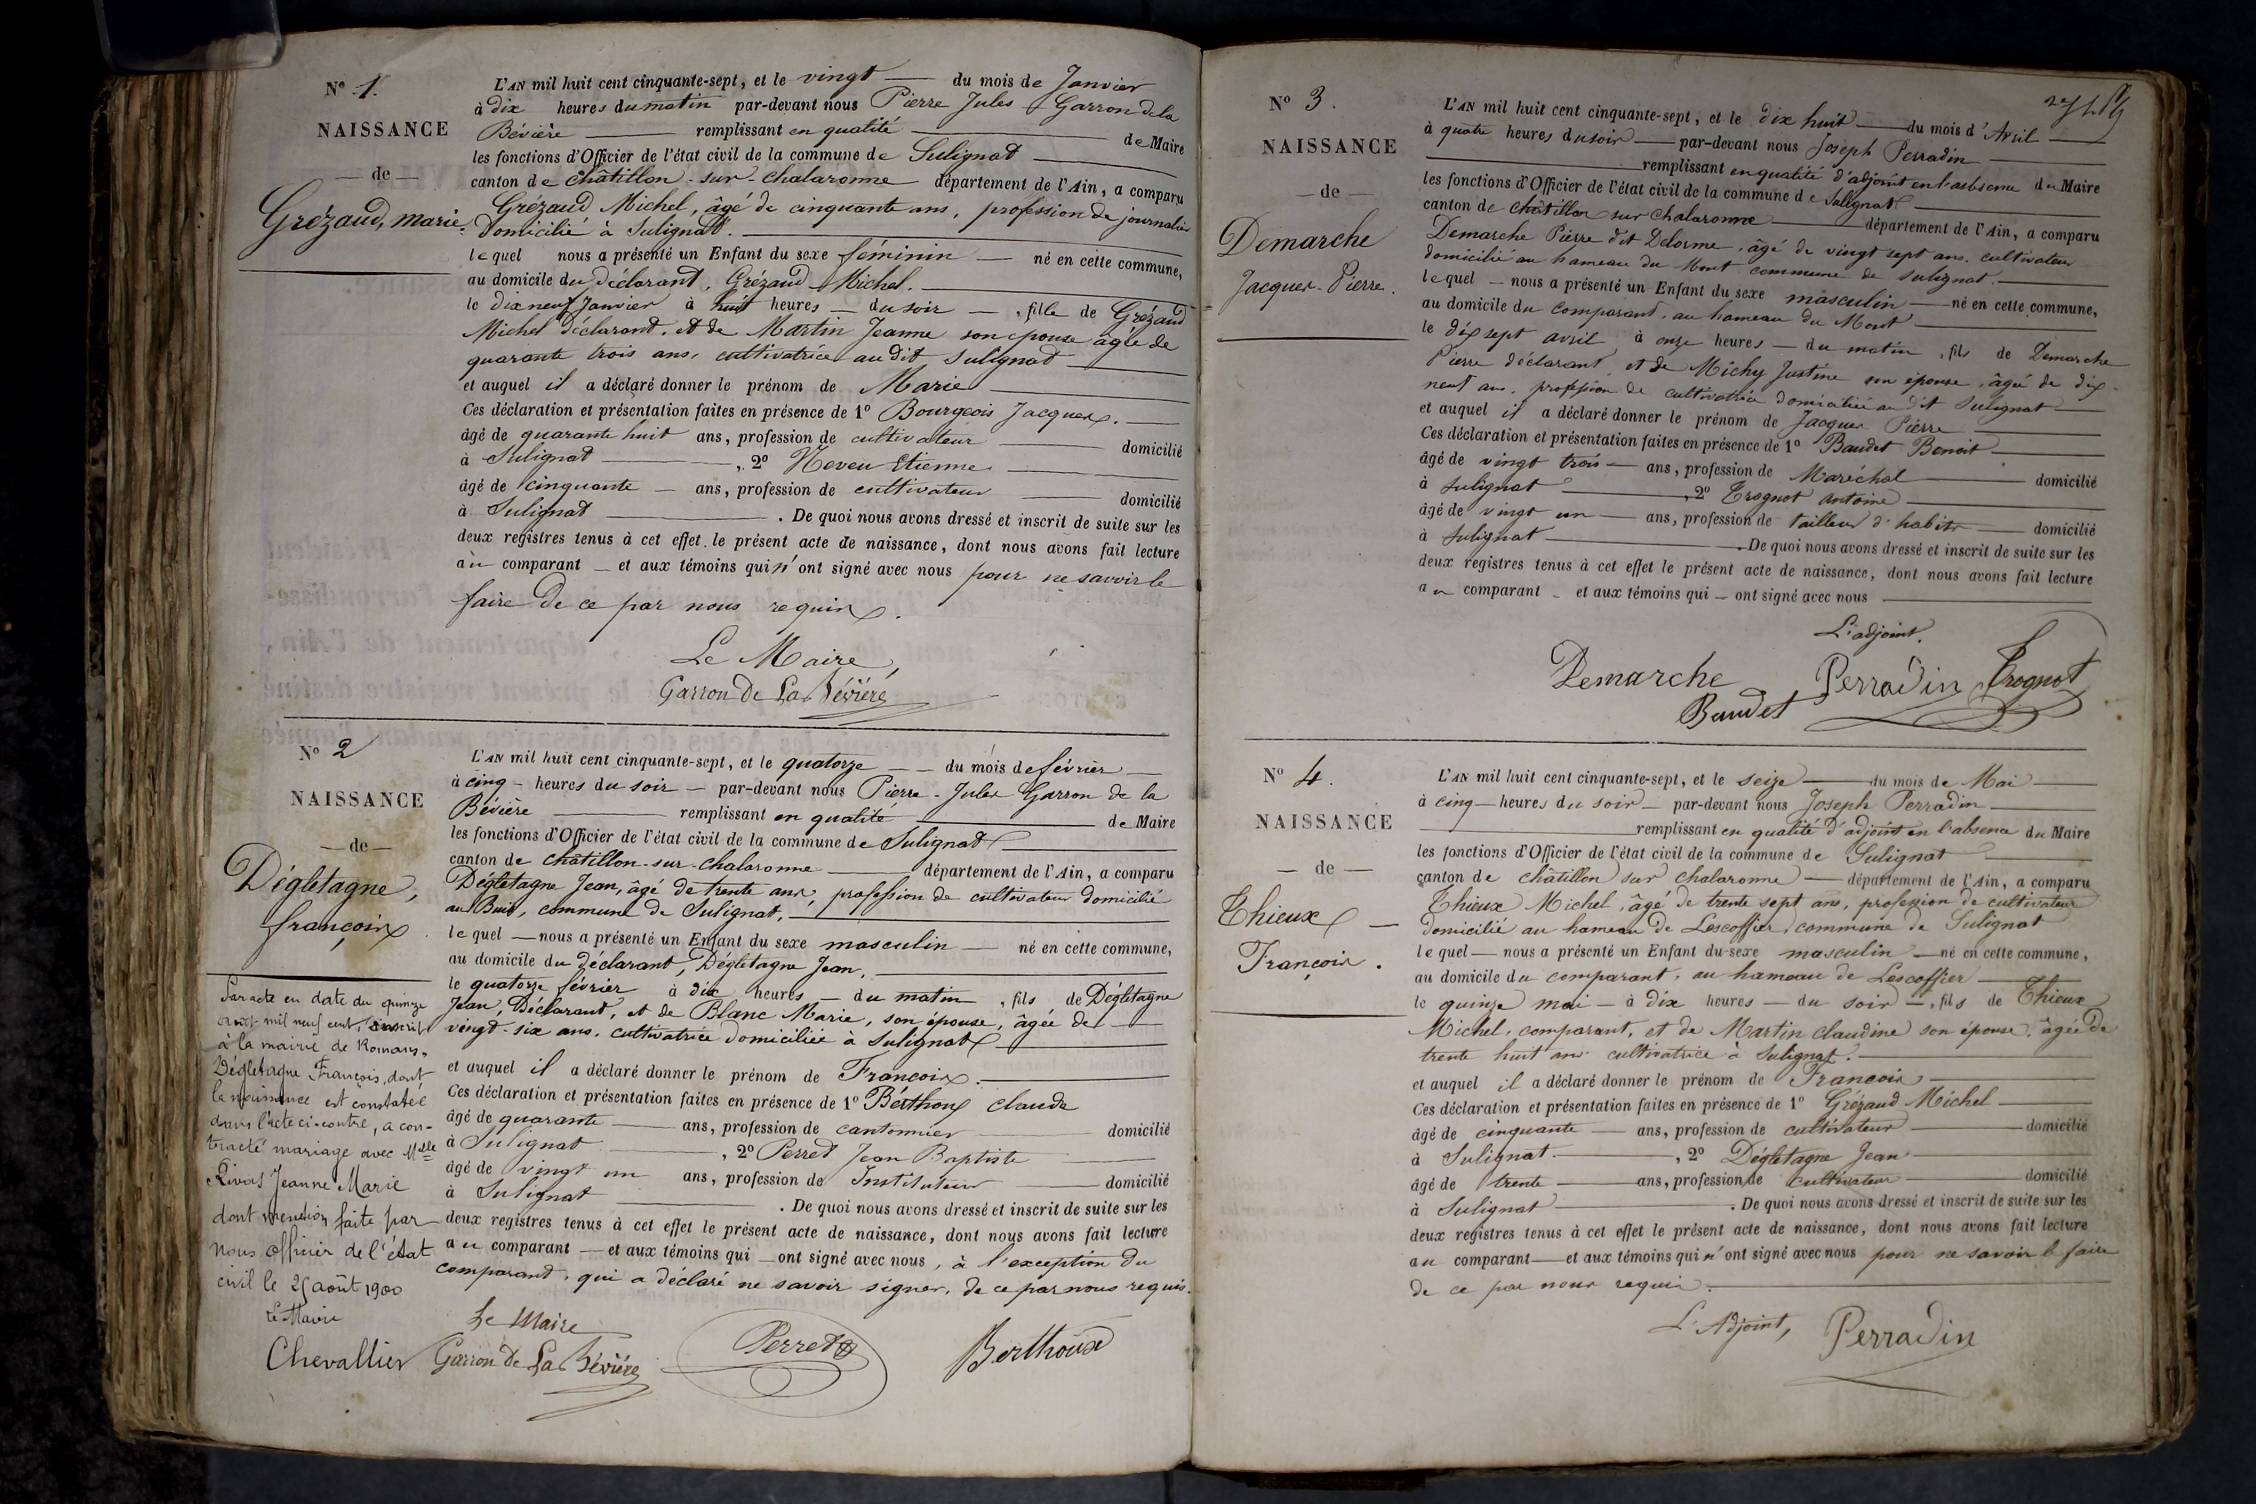 N° 1.
NAISSANCE
— de —
Grézaud, marie.
L'AN mil huit cent cinquante-sept, et le vingt — du mois de Janvier
à dix heures du matin par-devant nous Pierre Jules Garron de la
Bévière — remplissant en qualité — de Maire
les fonctions d'Officier de l'état civil de la commune de Sulignat —
canton de Châtillon-sur-Chalaronne département de l'Ain, a comparu
Grézaud Michel, âgé de cinquante ans, profession de journalier
Domicilié à Sulignat. —
lequel nous a présenté un Enfant du sexe féminin — né en cette commune,
au domicile du déclarant, Grézaud Michel. —
le dix neuf Janvier à huit heures — du soir —, fille de Grézaud
Michel déclarant, et de Martin Jeanne son épouse âgée de
quarante trois ans, cultivatrice au dit Sulignat —
et auquel il a déclaré donner le prénom de Marie —
Ces déclaration et présentation faites en présence de 1° Bourgeois Jacques. —
âgé de quarante huit ans, profession de cultivateur — domicilié
à Sulignat —, 2° Neveu Etienne —
âgé de cinquante — ans, profession de cultivateur — domicilié
à Sulignat — . De quoi nous avons dressé et inscrit de suite sur les
deux registres tenus à cet effet le présent acte de naissance, dont nous avons fait lecture
au comparant — et aux témoins qui n'ont signé avec nous pour ne savoir le
faire de ce par nous requis.
Le Maire,
Garron de La Bévière
N° 2
NAISSANCE
— de —
Dégletagne,
françois.
L'AN mil huit cent cinquante-sept, et le quatorze — — du mois de février —
à cinq — heures du soir — par-devant nous Pierre-Jules Garron de la
Bévière — remplissant en qualité — de Maire
les fonctions d'Officier de l'état civil de la commune de Sulignat
canton de châtillon-sur-chalaronne — département de l'Ain, a comparu
Dégletagne Jean, âgé de trente ans, profession de cultivateur domicilié
au Buis, commune de Sulignat, —
lequel — nous a présenté un Enfant du sexe masculin — né en cette commune,
au domicile du déclarant, Dégletagne Jean, —
le quatorze février à dix heures — du matin, fils de Dégletagne
Jean, Déclarant, et de Blanc Marie, son épouse, âgée de —
vingt-six ans, cultivatrice domiciliée à Sulignat —
et auquel il a déclaré donner le prénom de François. —
Ces déclaration et présentation faites en présence de 1° Bérthoux claude
âgé de quarante — ans, profession de cantonnier — domicilié
à Sulignat —, 2° Perret Jean Baptiste —
âgé de vingt un ans, profession de Instituteur — domicilié
à Sulignat — . De quoi nous avons dressé et inscrit de suite sur les
deux registres tenus à cet effet le présent acte de naissance, dont nous avons fait lecture
au comparant — et aux témoins qui — ont signé avec nous, à l'exception du
comparant, qui a déclaré ne savoir signer, de ce par nous requis.
Le Maire
Garron de La Bévière Perret Berthoux
Par acte en date du quinze
août mil neuf cent, inscrit
à la mairie de Romans,
Dégletagne François, dont
la naissance est constatée
dans l'acte ci-contre, a con-
tracté mariage avec Melle
Rivas Jeanne Marie
dont mention faite par
nous officier de l'état
civil le 25 août 1900
Le Maire
Chevallier
N° 3.
NAISSANCE
— de —
Demarche
Jacques-Pierre.
L'AN mil huit cent cinquante-sept, et le dix huit — du mois d'Avril —
à quatre heures du soir — par-devant nous Joseph Perradin —
— remplissant en qualité d'adjoint en l'absence du Maire
les fonctions d'Officier de l'état civil de la commune de Sulignat —
canton de châtillon sur Chalaronne — département de l'Ain, a comparu
Demarche Pierre dit Delorme, âgé de vingt sept ans, cultivateur
domicilié au hameau du Mont commune de Sulignat. —
lequel — nous a présenté un Enfant du sexe masculin — né en cette commune,
au domicile du comparant, au hameau du Mont —
le dix sept avril à onze heures — du matin, fils de Demarche
Pierre déclarant, et de Michy Justine son épouse, âgée de dix-
neuf ans, profession de cultivatrice domiciliée au dit Sulignat —
et auquel il a déclaré donner le prénom de Jacques Pierre —
Ces déclaration et présentation faites en présence de 1° Baudet Benoit —
âgé de vingt trois — ans, profession de Maréchal — domicilié
à Sulignat —, 2° Trognot Antoine —
âgé de vingt un — ans, profession de tailleur d'habits — domicilié
à Sulignat — . De quoi nous avons dressé et inscrit de suite sur les
deux registres tenus à cet effet le présent acte de naissance, dont nous avons fait lecture
au comparant — et aux témoins qui — ont signé avec nous —
L'adjoint.
Demarche Perradin Trognot
Baudet
N° 4.
NAISSANCE
— de —
Thieux —
François.
L'AN mil huit cent cinquante-sept, et le seize — du mois de Mai —
à cinq — heures du soir — par-devant nous Joseph Perradin —
— remplissant en qualité d'adjoint en l'absence du Maire
les fonctions d'Officier de l'état civil de la commune de Sulignat —
canton de châtillon sur chalaronne — département de l'Ain, a comparu
Thieux Michel, âgé de trente sept ans, profession de cultivateur
domicilié au hameau de Lescoffier, commune de Sulignat
lequel — nous a présenté un Enfant du sexe masculin — né en cette commune,
au domicile du comparant, au hameau de Lescoffier —
le quinze mai — à dix heures — du soir —, fils de Thieux
Michel, comparant, et de Martin claudine son épouse, âgée de
trente huit ans cultivatrice à Sulignat. —
et auquel il a déclaré donner le prénom de François —
Ces déclaration et présentation faites en présence de 1° Grézaud Michel —
âgé de cinquante — ans, profession de cultivateur — domicilié
à Sulignat. —, 2° Dégletagne Jean —
âgé de trente — ans, profession de cultivateur — domicilié
à Sulignat — . De quoi nous avons dressé et inscrit de suite sur les
deux registres tenus à cet effet le présent acte de naissance, dont nous avons fait lecture
au comparant — et aux témoins qui n'ont signé avec nous pour ne savoir le faire
de ce par nous requis. —
L'Adjoint, Perradin